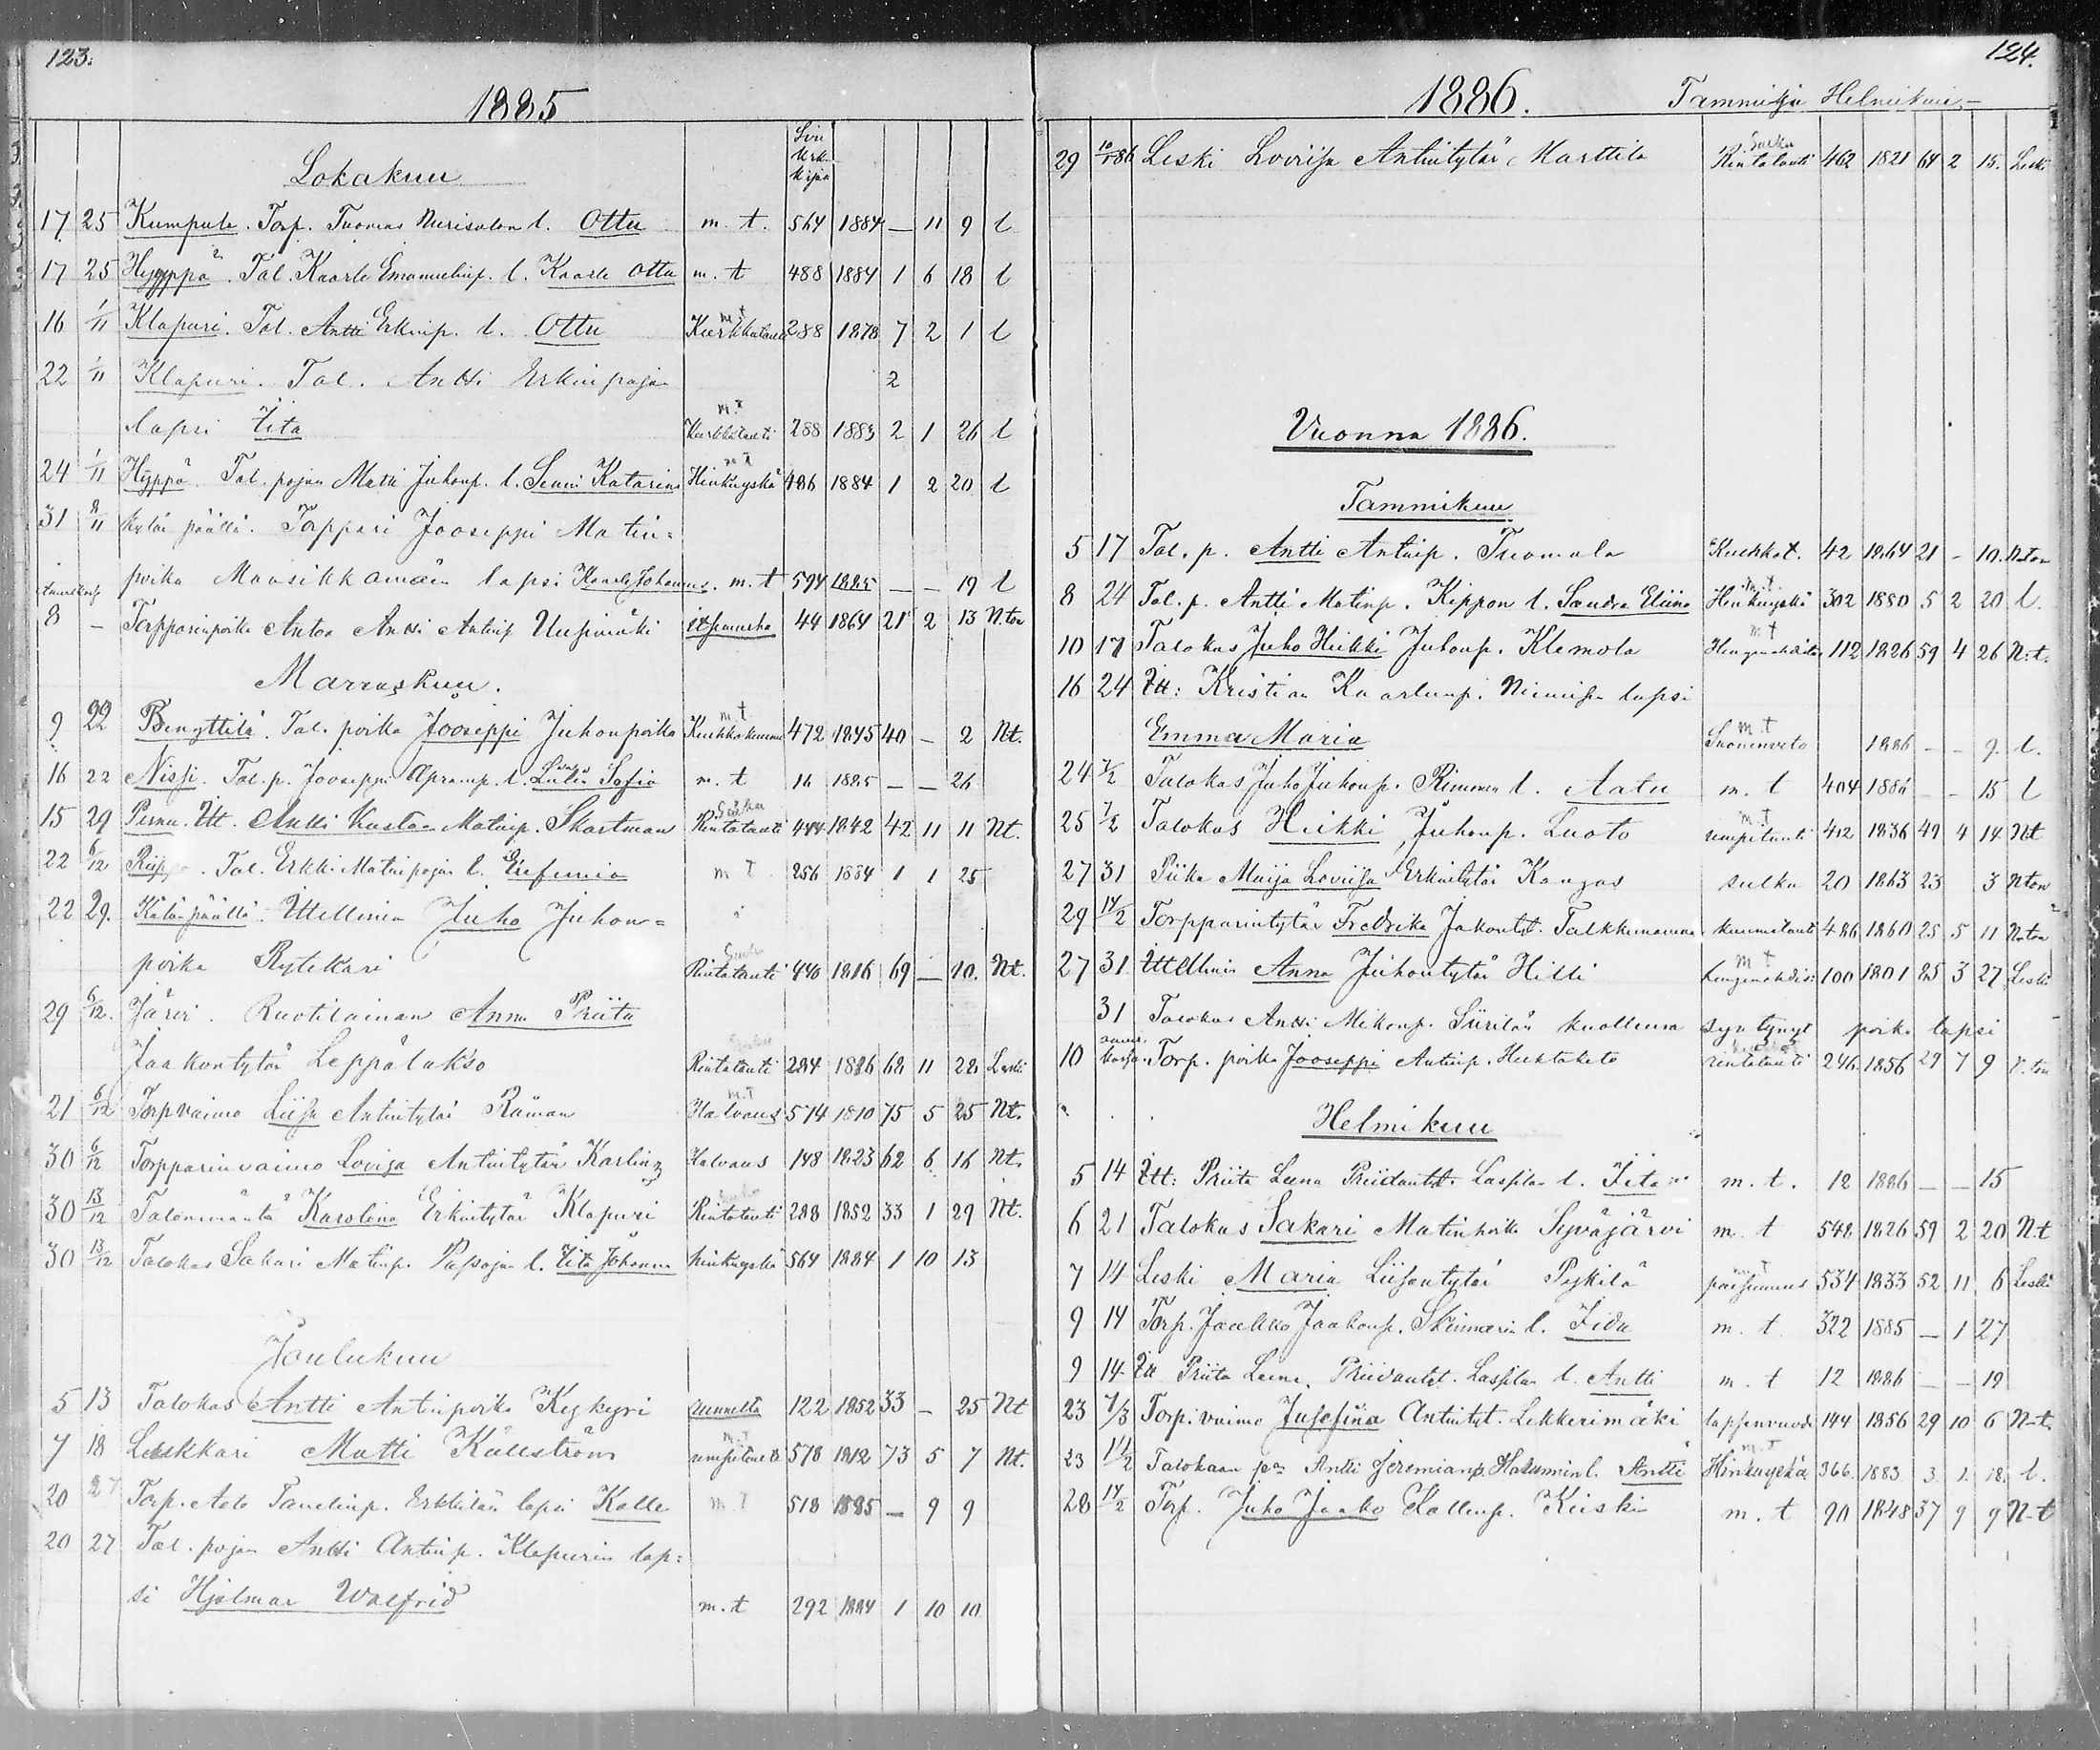 123.
1885
Siv.
Kirja
Lokakuu
17. 25 Kumpula. Torp. Tuomas l. Otto m. t. 564 1884 — 11 9 l
17 25 Hyyppä. Tal. Kaarle Emanuelinp. l. Kaarle Otto m. t 488 1884 1 6 18 l
16 1/11 Klapuri. Tal. Antti Erkinp. l. Otto m t Kurkkutauti 288 1878 7 2 1 l
22 1/11 Klapuri. Tal. Antti Erkinpojan 2
lapsi Iita m.t Kurkkutauti 288 1883 2 1 26 l
24 1/11 Hyppä. Tal. pojan Matti Juhonp. l. Senni Katarina m t Hinkuyskä 486 1884 1 2 20 l
31 8/11 Kylän päällä. Tappari Jooseppi Matin=
poika Mansikkamäen lapsi Kaarle Johannes. m. t 594 1885 — — 19 l
8 — Torpparinpoika Anton Antti Antinp Uusimäki itsemurha 44 1864 21 2 13 N.ton
Marraskuu.
9 22 Benyttilä. Tal. poika Jooseppi Juhonpoika m t Kurkkukuume 472 1845 40 — 2 Nt.
16 22 Nissi. Tal. p. Jooseppi Apramp. l. Sofia m. t 16 1885 — — 26
15 29 Pernu. Itt. Antti Kustaa Matinp. Skartman Rintatauti 444 1842 42 11 11 Nt.
22 6/12 Riippa. Tal. Erkki Matinpojan l. Eufemia m t 256 1884 1 1 25
22 29. Kylän päällä. Ittellinen Juho Juhon=
poika Rytikari Rintatauti 440 1816 69 — 10. Nt.
29 6/12. Järvi. Ruotilainan Anna Priita
Jaakontytär Leppälakso Rintatauti 284 1816 68 11 28 Leski
21 6/12 Torpvaimo Liisa Antintytär Räman m.t Halvaus 574 1810 75 5 25 Nt.
30 6/12 Torpparinvaimo Lovisa Antintytär Karling Halvaus 148 1823 62 6 16 Nt.
30 13/12 Talonemäntä Karolina Erkintytär Klapuri Rintatauti 288 1852 33 1 29 Nt.
30 13/12 Talokas Sakari Matinp. Passojan l. Iita Johanna hinkuyskä 564 1884 1 10 13
Joulukuu
5 13 Talokas Antti Antinpoika Kykyri 122 1852 33 — 25 Nt
7 18 Leskkari Matti Källström m.t umpitauti 578 1812 73 5 7 Nt.
20 27 Torp. Aato Tanelinp. Erkkilän lapsi Kalle m.t 518 1885 — 9 9
20 27 Tal. pojan Antti Antinp. Klapurin lap=
si Hjalmar Walfrid m. t 292 1884 1 10 10
124.
1886. Tammi ja Helmikuu —
29 Leski Loviisa Antintytär Marttila Rintatauti 462 1821 64 2 15. Leski
Vuonna 1886.
Tammikuu
5 17 Tal. p. Antti Antinp. Tuomala Kurkkut. 42 1864 21 - 10. N.ton
8 24 Tal. p. Antti Matinp. Kippon l. Sandra Eliina m.t. Hinkuyskä 302 1880 5 2 20 l.
10 17 Talokas Juho Heikki Juhonp. Klemola m t Hengenahdistus 112 1826 59 4 26 N.t.
16 24 Itt: Kristian Kaarlenp. Niemisen lapsi
Emma Maria m.t Suonenveto 1886 — — 9. l.
24 7/2 Talokas Juho Juhonp. Rimmen l. Aatu m. t 404 1886 — — 15 l
25 7/2 Talokas Heikki Juhonp. Luoto m t umpitauti 412 1836 49 4 14 Nt
27 31 Piika Maija Loviisa Erkintytär Kangas sulku 20 1863 23 3 Nton
29 14/2 Torpparintytär Fredrika Jakontyt. Talkkunamaa kuumetauti 486 1860 25 5 11 Nton
27 31 Ittellinen Anna Juhontytär Hilli m t hengenahdist 100 1801 85 3 27 Leski
31 Talokas Antti Mikonp. Siirilän kuollema syntynyt poika lapsi
10 Torp. poika Jooseppi Antinp. Huhtaketo rintatauti 246 1856 29 7 9 N.ton
Helmikuu
5 14 Itt: Priita Leena Priidantyt. Lassilan l. Iita m. t. 12 1886 — — 15
6 21 Talokas Sakari Matinpoika Syväjärvi m. t 548 1826 59 2 20 N.t
7 14 Leski Maria Liisantytär Pyhilä paisumus 534 1833 52 11 6 Leski
9 14 Torp. Jaakko Jaakonp. Skinnarin l. Iida m. t. 322 1885 — 1 27
9 14 Itt Priita Leena Priidantyt. Lassilan l. Antti m. t 12 1886 — — 19
23 7/3 Torp. vaimo Jusefiina Antintyt. Lekkerimäki lapsenvuode 144 1856 29 10 6 N-t.
23 14/2 Talokaan Antti Jeremianp. l. Antti m.t Hinkuyskä 366 1883 3 1 18 l.
28 14/2 Torp. Juho Jaako Kallenp. Kiiski m. t 90 1848 37 9 9 N-t